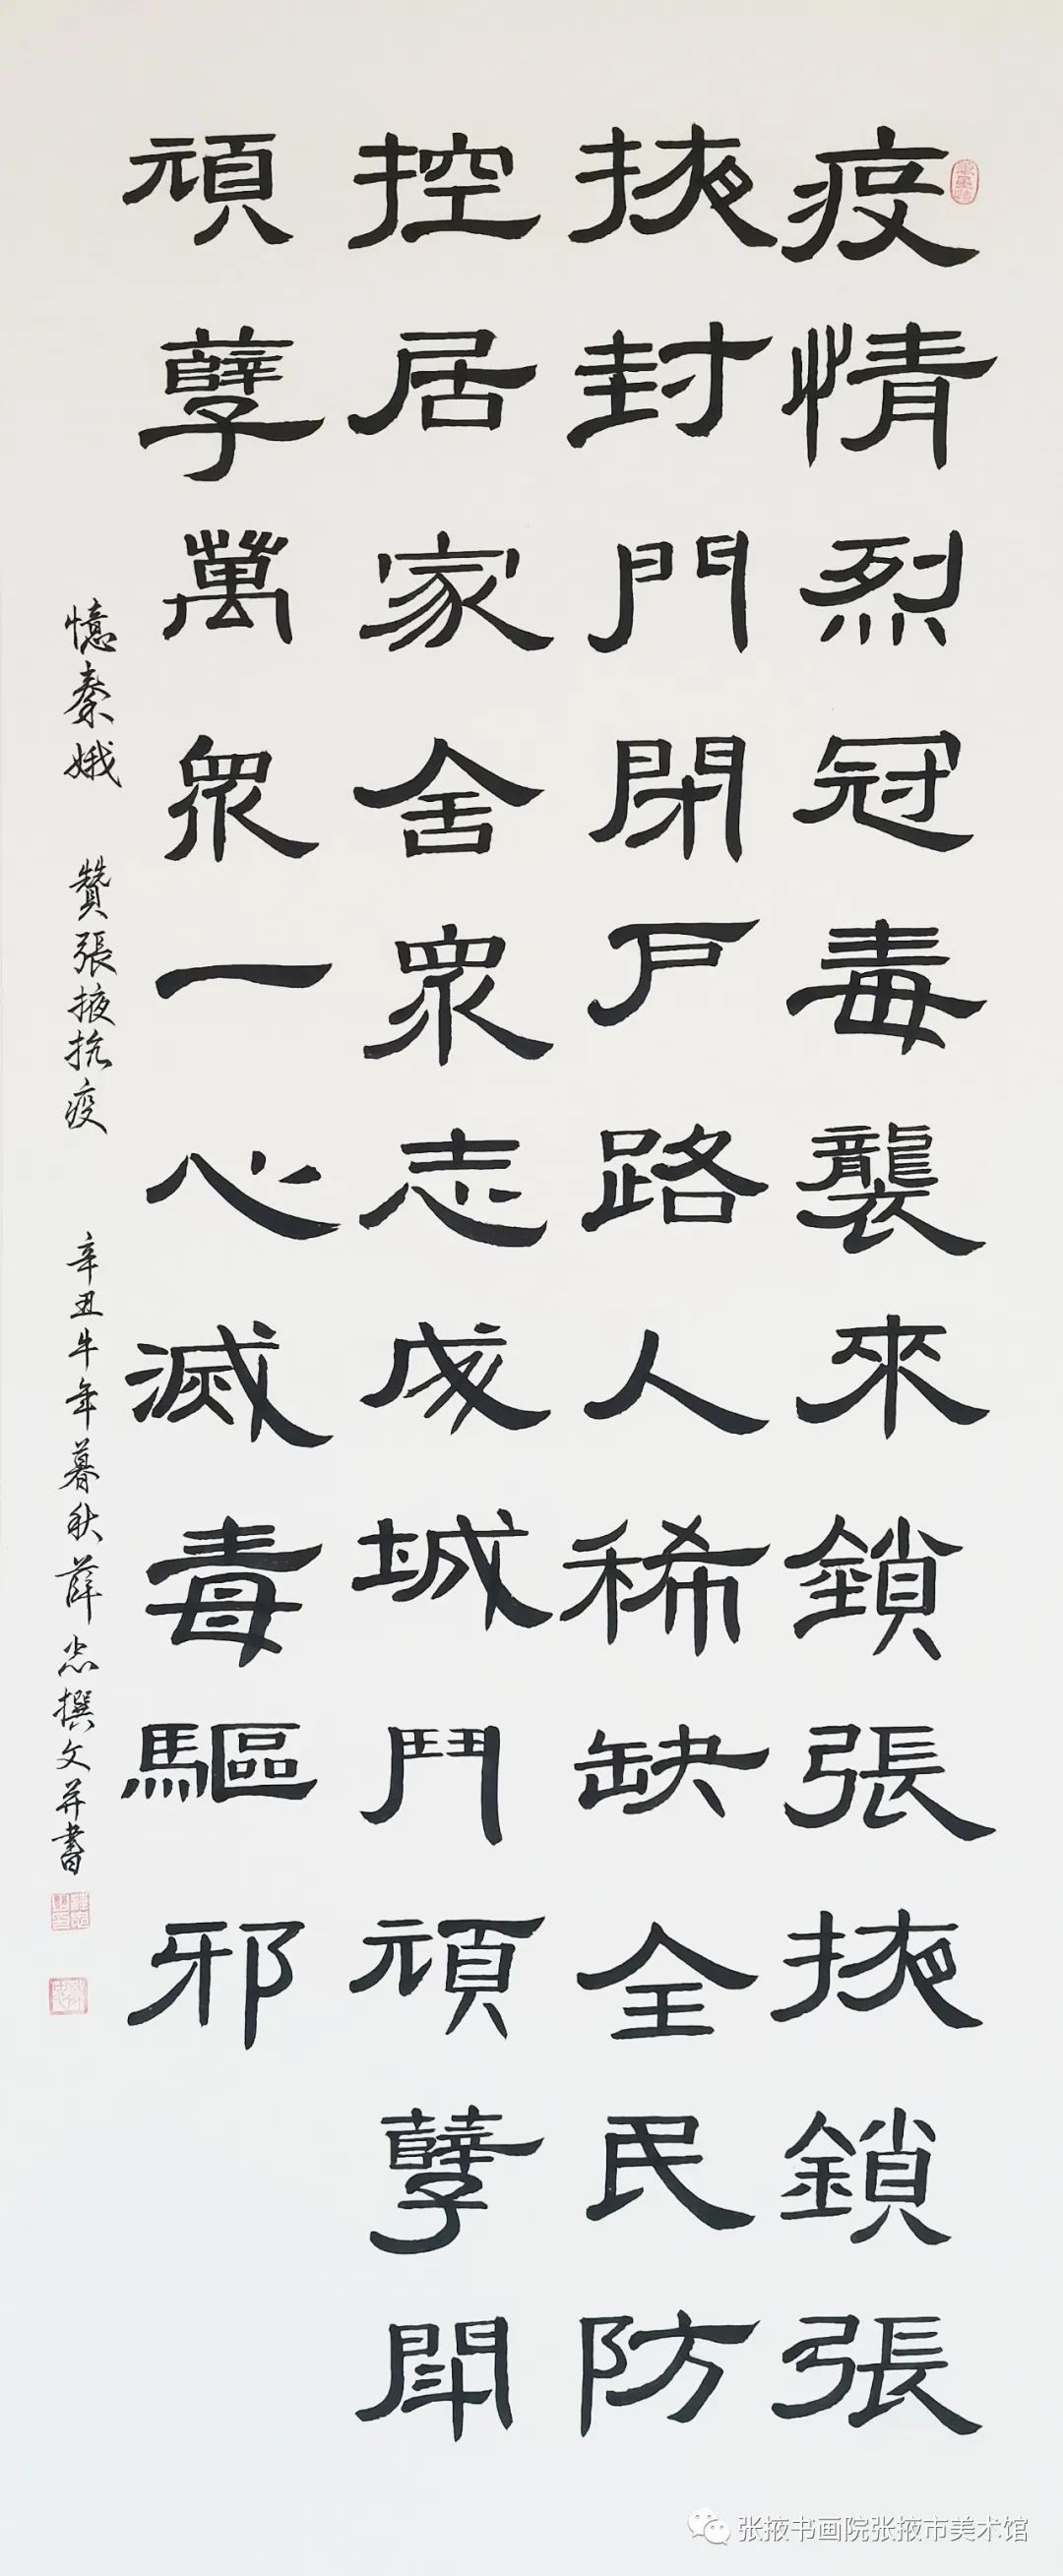 疫情烈冠毒襲來鎖張掖鎖張
掖封門閉戶路人稀缺全民防
控居家舍眾志成城鬥頑孽鬧
頑孽萬眾一心滅毒驅邪
憶秦娥 贊張掖抗疫 辛丑牛年暮秋薛忠撰文并書
张掖书画院张掖市美术馆